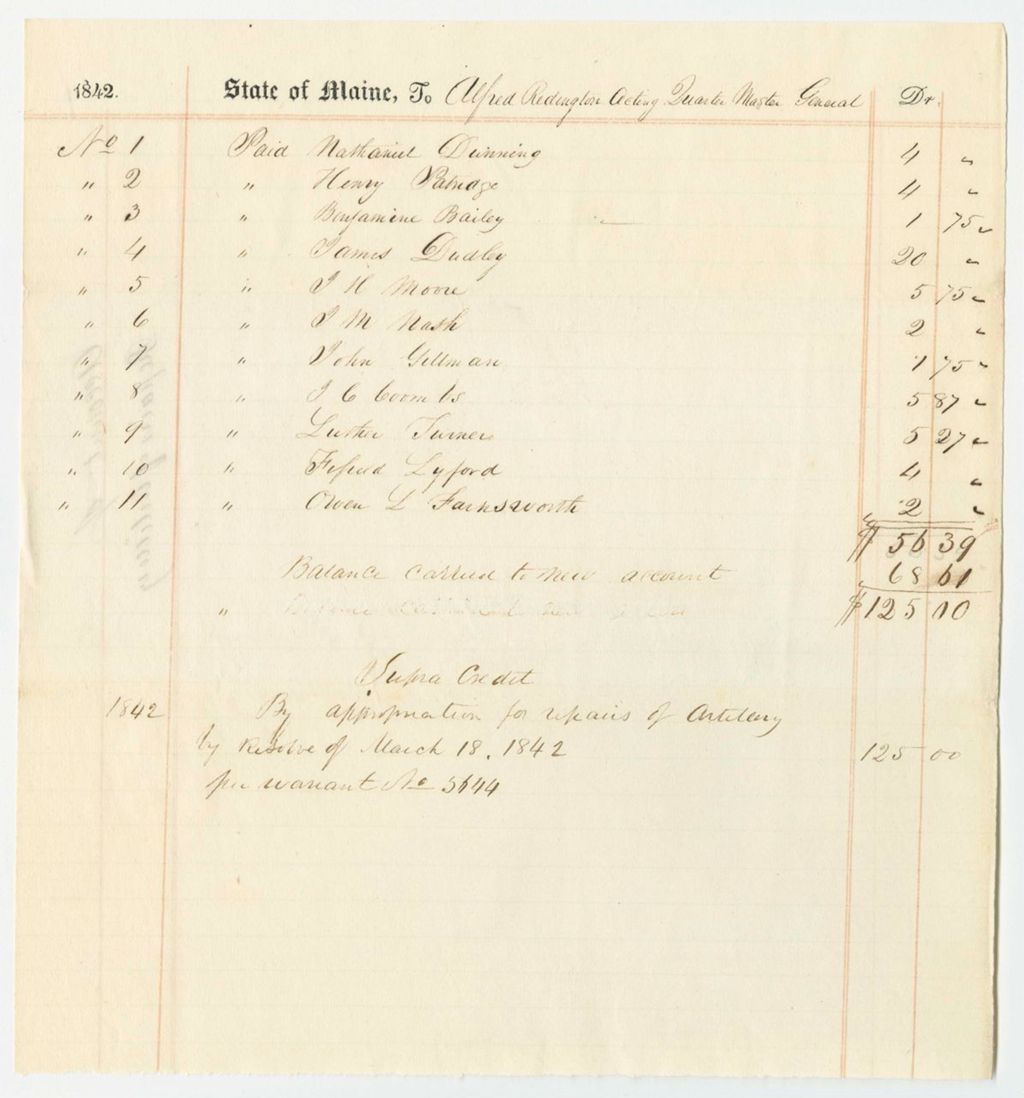 1842. State of Maine, To Alfred Redington Acting Quarter Master General Dr.
No 1 Paid Nathaniel Dunning 4 "
" 2 " Henry Patridge 4 "
" 3 " Benjamine Bailey 1 75
" 4 " James Dudley 20 "
" 5 " J H Moore 5 75
" 6 " J M Nash 2 "
" 7 " John Gillman 1 75
" 8 " J C Coombs 5 87
" 9 " Luther Turner 5 27
" 10 " Lyford 4 "
" 11 " Owen L Farnsworth 2 "
$ 56 39
Balance carried to new account 68 61
" $125 00
Supra Credit
1842 By appropriation for repairs of Artillery
by Resolve of March 18, 1842 125 00
per warrant No 5644